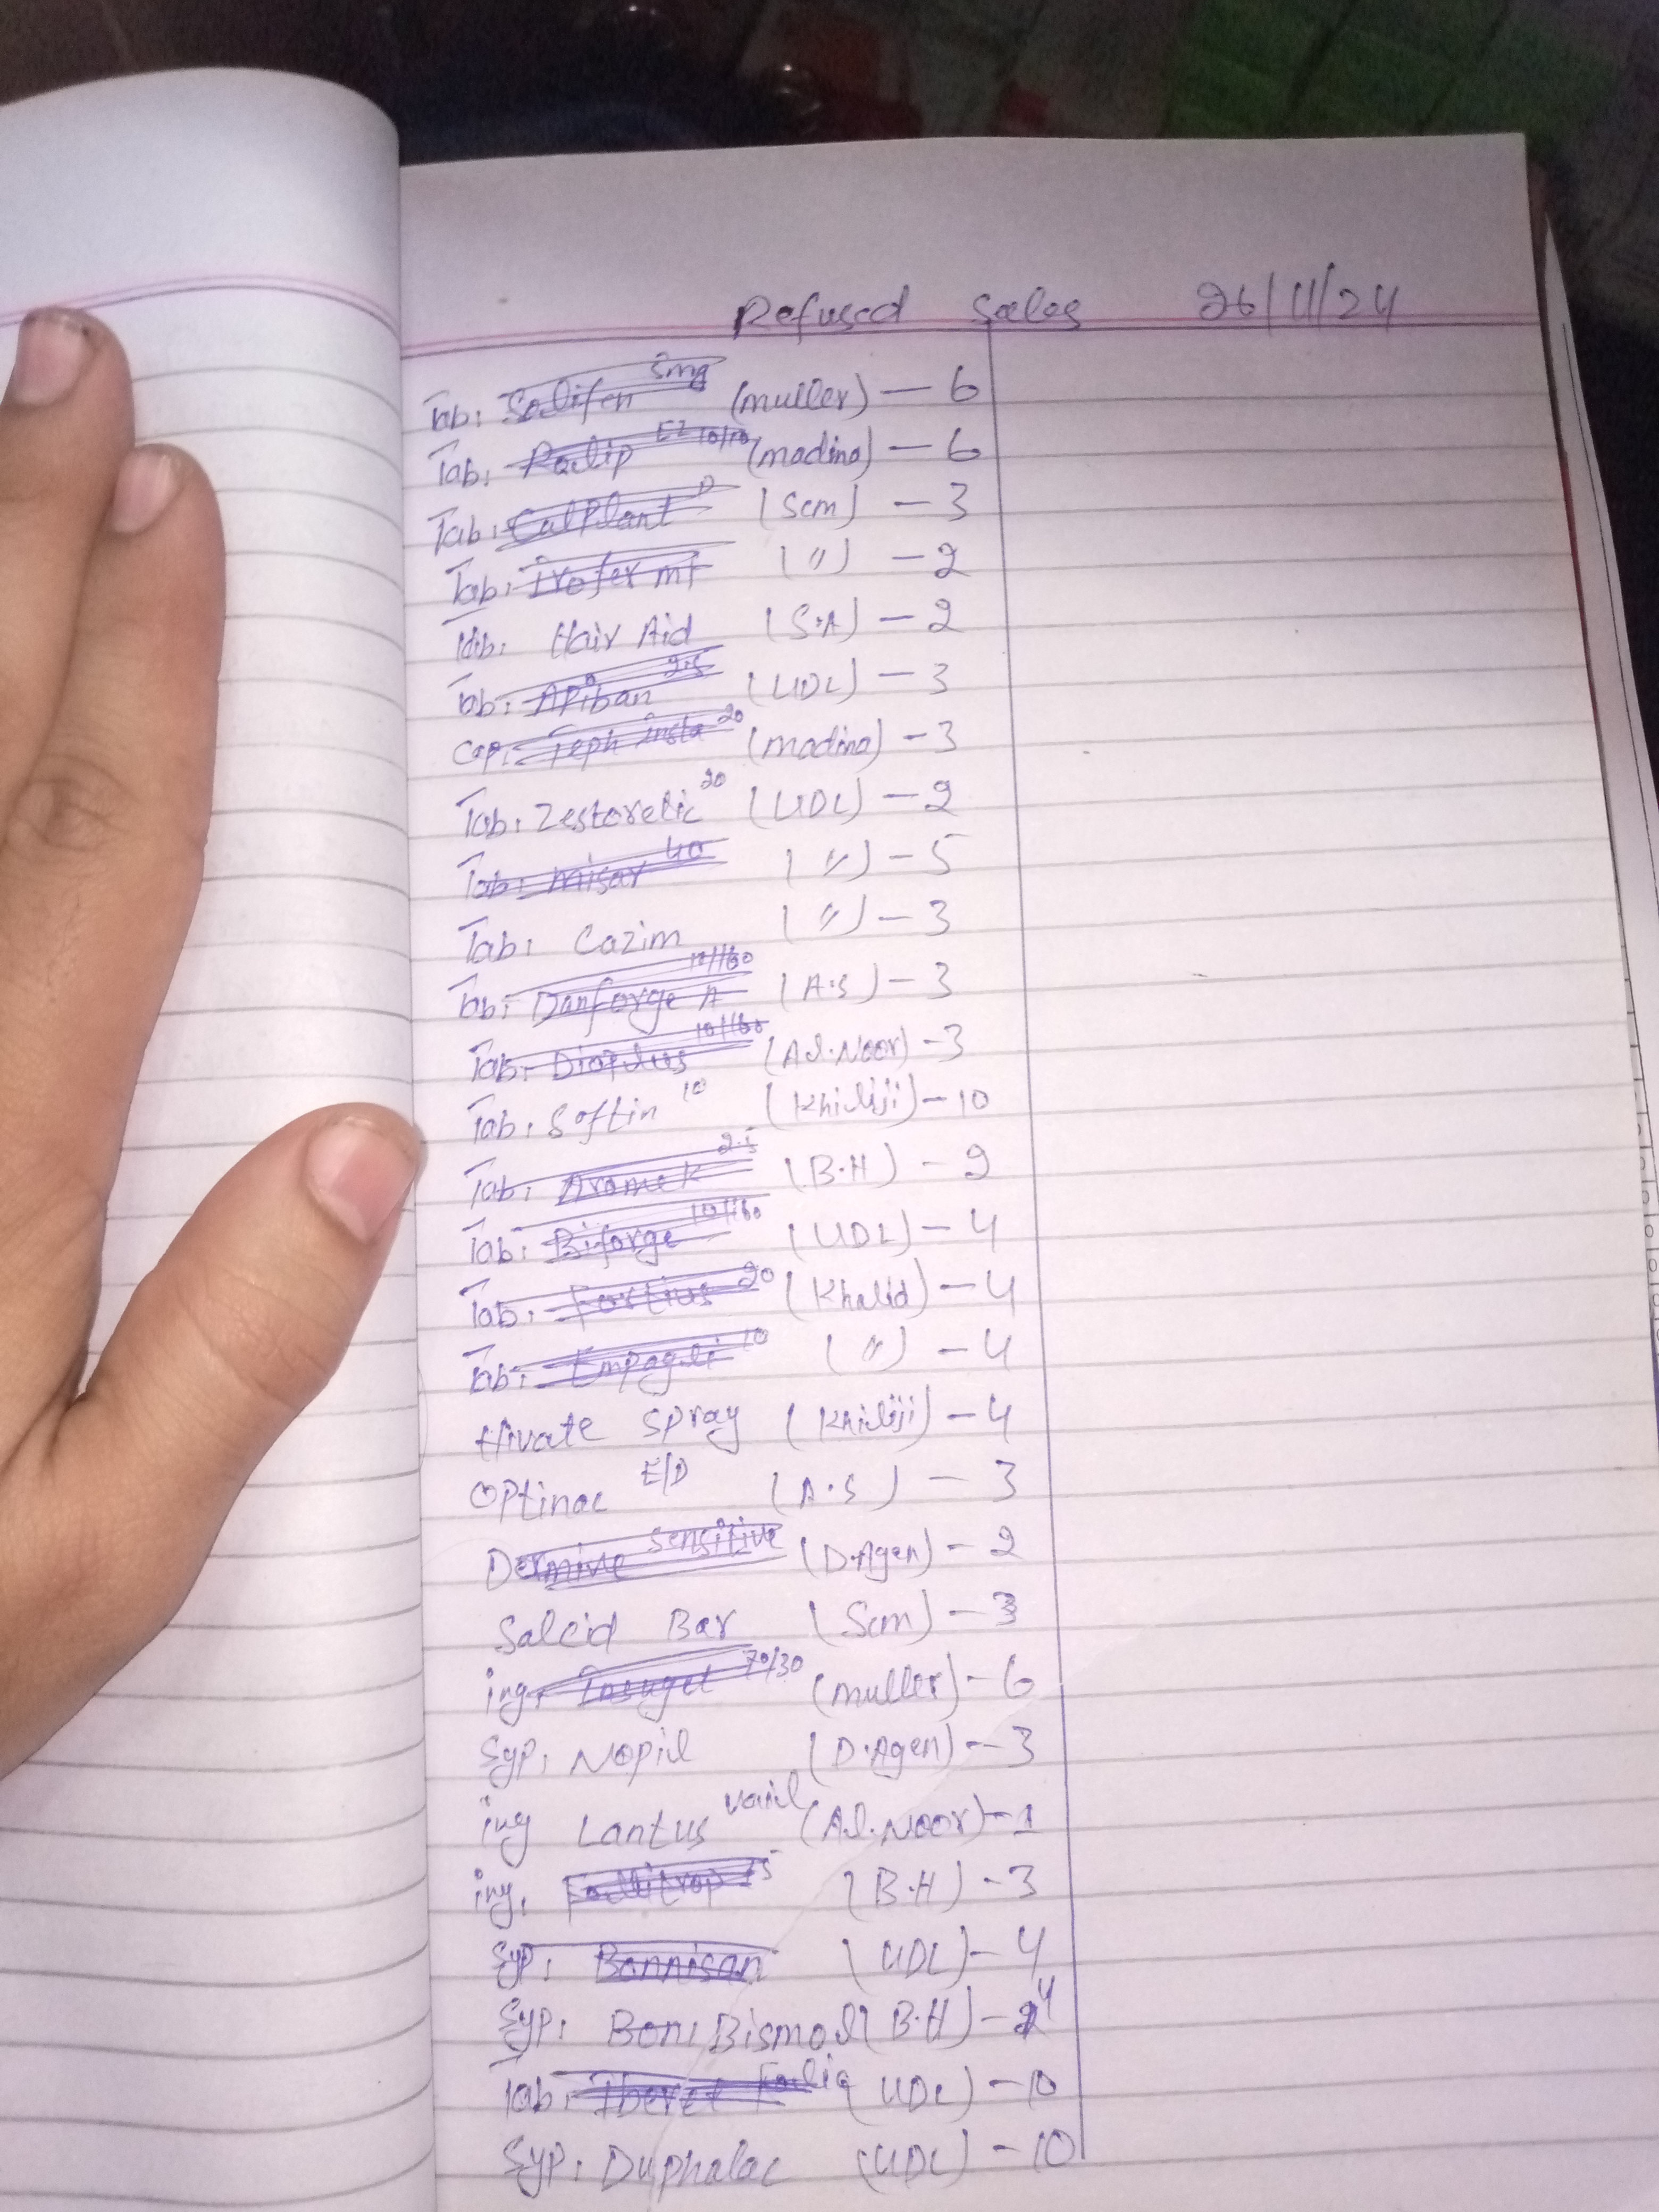 Refused Sales 26/11/24
Tab: Solifen 5mg (muller) — 6
Tab: Ralip EZ 10/10 (madina) — 6
Tab: CalPlant D (Scm) — 3
Tab: Irofer mf (〃) — 2
Tab: Hair Aid (S.A) — 2
Tab: APiban 2.5 (UDL) — 3
Cap: Teph insta 20 (madina) — 3
Tab: Zestoretic 20 (UDL) — 2
Tab: misar 40 (〃) — 5
Tab: Cazim (〃) — 3
Tab: Danforge A 10/160 (A.S) — 3
Tab: Dioplus 10/160 (Al.Noor) — 3
Tab: Softin 10 (Khiliji) — 10
Tab: Aromek 2.5 (B.H) — 2
Tab: Biforge 10/160 (UDL) — 4
Tab: Fortius 20 (Khalid) — 4
Tab: Empagli 10 (〃) — 4
Hivate Spray (Khiliji) — 4
Optinac E/D (A.S) — 3
Dermive Sensitive (D.Agen) — 2
Salcid Bar (Scm) — 3
ing: Insuget 70/30 (muller) — 6
Syp: Nopil (D.Agen) — 3
ing Lantus vail (Al.Noor) — 1
ing: 75 (B.H) — 3
Syp: Bonnisan (UDL) — 4
Syp: Boni Bismol (B.H) — 4
Tab: Iberet Folic (UDL) — 10
Syp: Duphalac (UDL) — 10